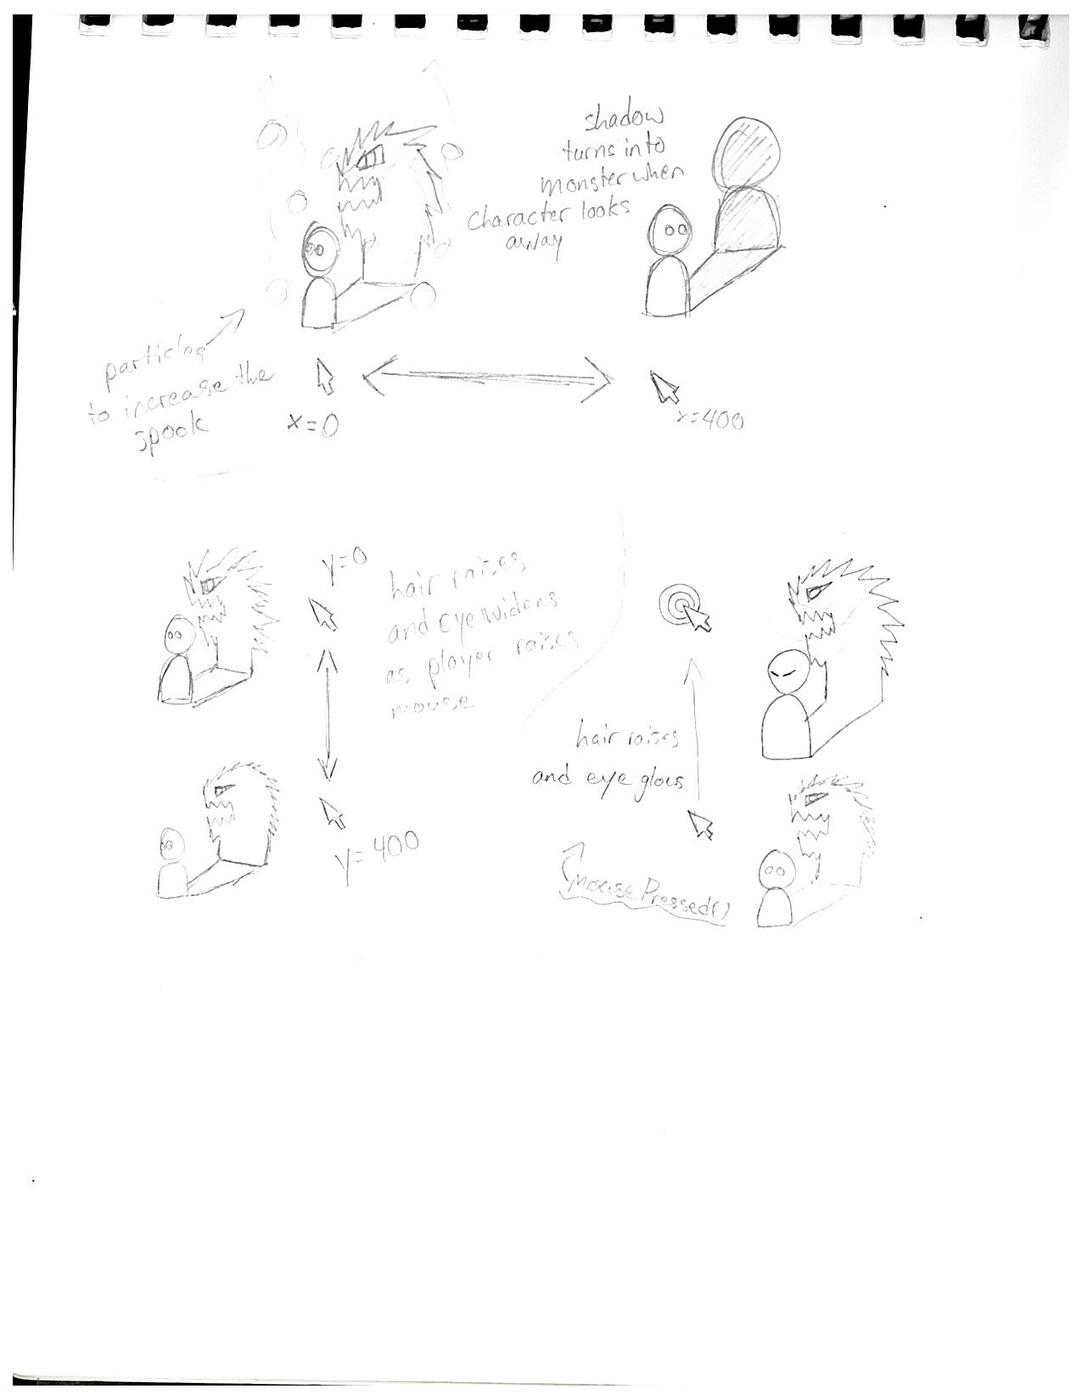 shadow
turns into
monster when
character looks
away
particles
to increase the
spook
x=0
x=400
y=0
hair raises
and eye widens
as player raises
mouse
y=400
hair raises
and eye glows
mousePressed()